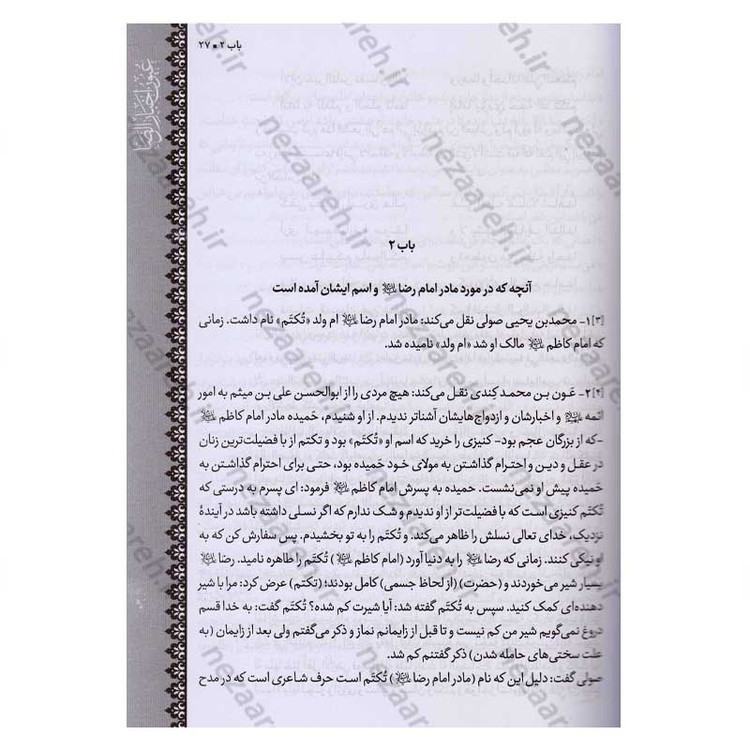 باب ۲ ■ ۲۷
عیون اخبار الرضا
باب ۲
آنچه که در مورد مادر امام رضا علیه السلام و اسم ایشان آمده است
[۳]۱- محمدبن یحیی صولی نقل می‌کند: مادر امام رضا علیه السلام ام ولد «تُکتَم» نام داشت. زمانی
که امام کاظم علیه السلام مالک او شد «ام ولد» نامیده شد.
[۴]۲- عَون بن محمد کِندی نقل می‌کند: هیچ مردی را از ابوالحسن علی بن میثم به امور
ائمه علیهم السلام و اخبارشان و ازدواج‌هایشان آشناتر ندیدم. از او شنیدم، حَمیده مادر امام کاظم علیه السلام
-که از بزرگان عجم بود- کنیزی را خرید که اسم او «تُکتَم» بود و تکتم از با فضیلت‌ترین زنان
در عقل و دیـن و احترام گذاشتن به مولای خود حَمیده بود، حتی برای احترام گذاشتن به
حَمیده پیش او نمی‌نشست. حمیده به پسرش امام کاظم علیه السلام فرمود: ای پسرم به درستی که
تُکتَم کنیزی است که با فضیلت‌تر از او ندیدم و شک ندارم که اگر نسلی داشته باشد در آیندهٔ
نزدیک، خدای تعالی نسلش را ظاهر می‌کند. و تُکتَم را به تو بخشیدم. پس سفارش کن که به
او نیکی کنند. زمانی که رضا علیه السلام را به دنیا آورد (امام کاظم علیه السلام) تُکتَم را طاهره نامید. رضا علیه السلام
بسیار شیر می‌خوردند و (حضرت) (از لحاظ جسمی) کامل بودند؛ (تکتم) عرض کرد: مرا با شیر
دهنده‌ای کمک کنید. سپس به تُکتَم گفته شد: آیا شیرت کم شده؟ تُکتَم گفت: به خدا قسم
دروغ نمی‌گویم شیر من کم نیست و تا قبل از زایمانم نماز و ذکر می‌گفتم ولی بعد از زایمان (به
علت سختی‌های حامله شدن) ذکر گفتنم کم شد.
صولی گفت: دلیل این که نام (مادر امام رضا علیه السلام) تُکتَم است حرف شاعری است که در مدح
nezaareh.ir